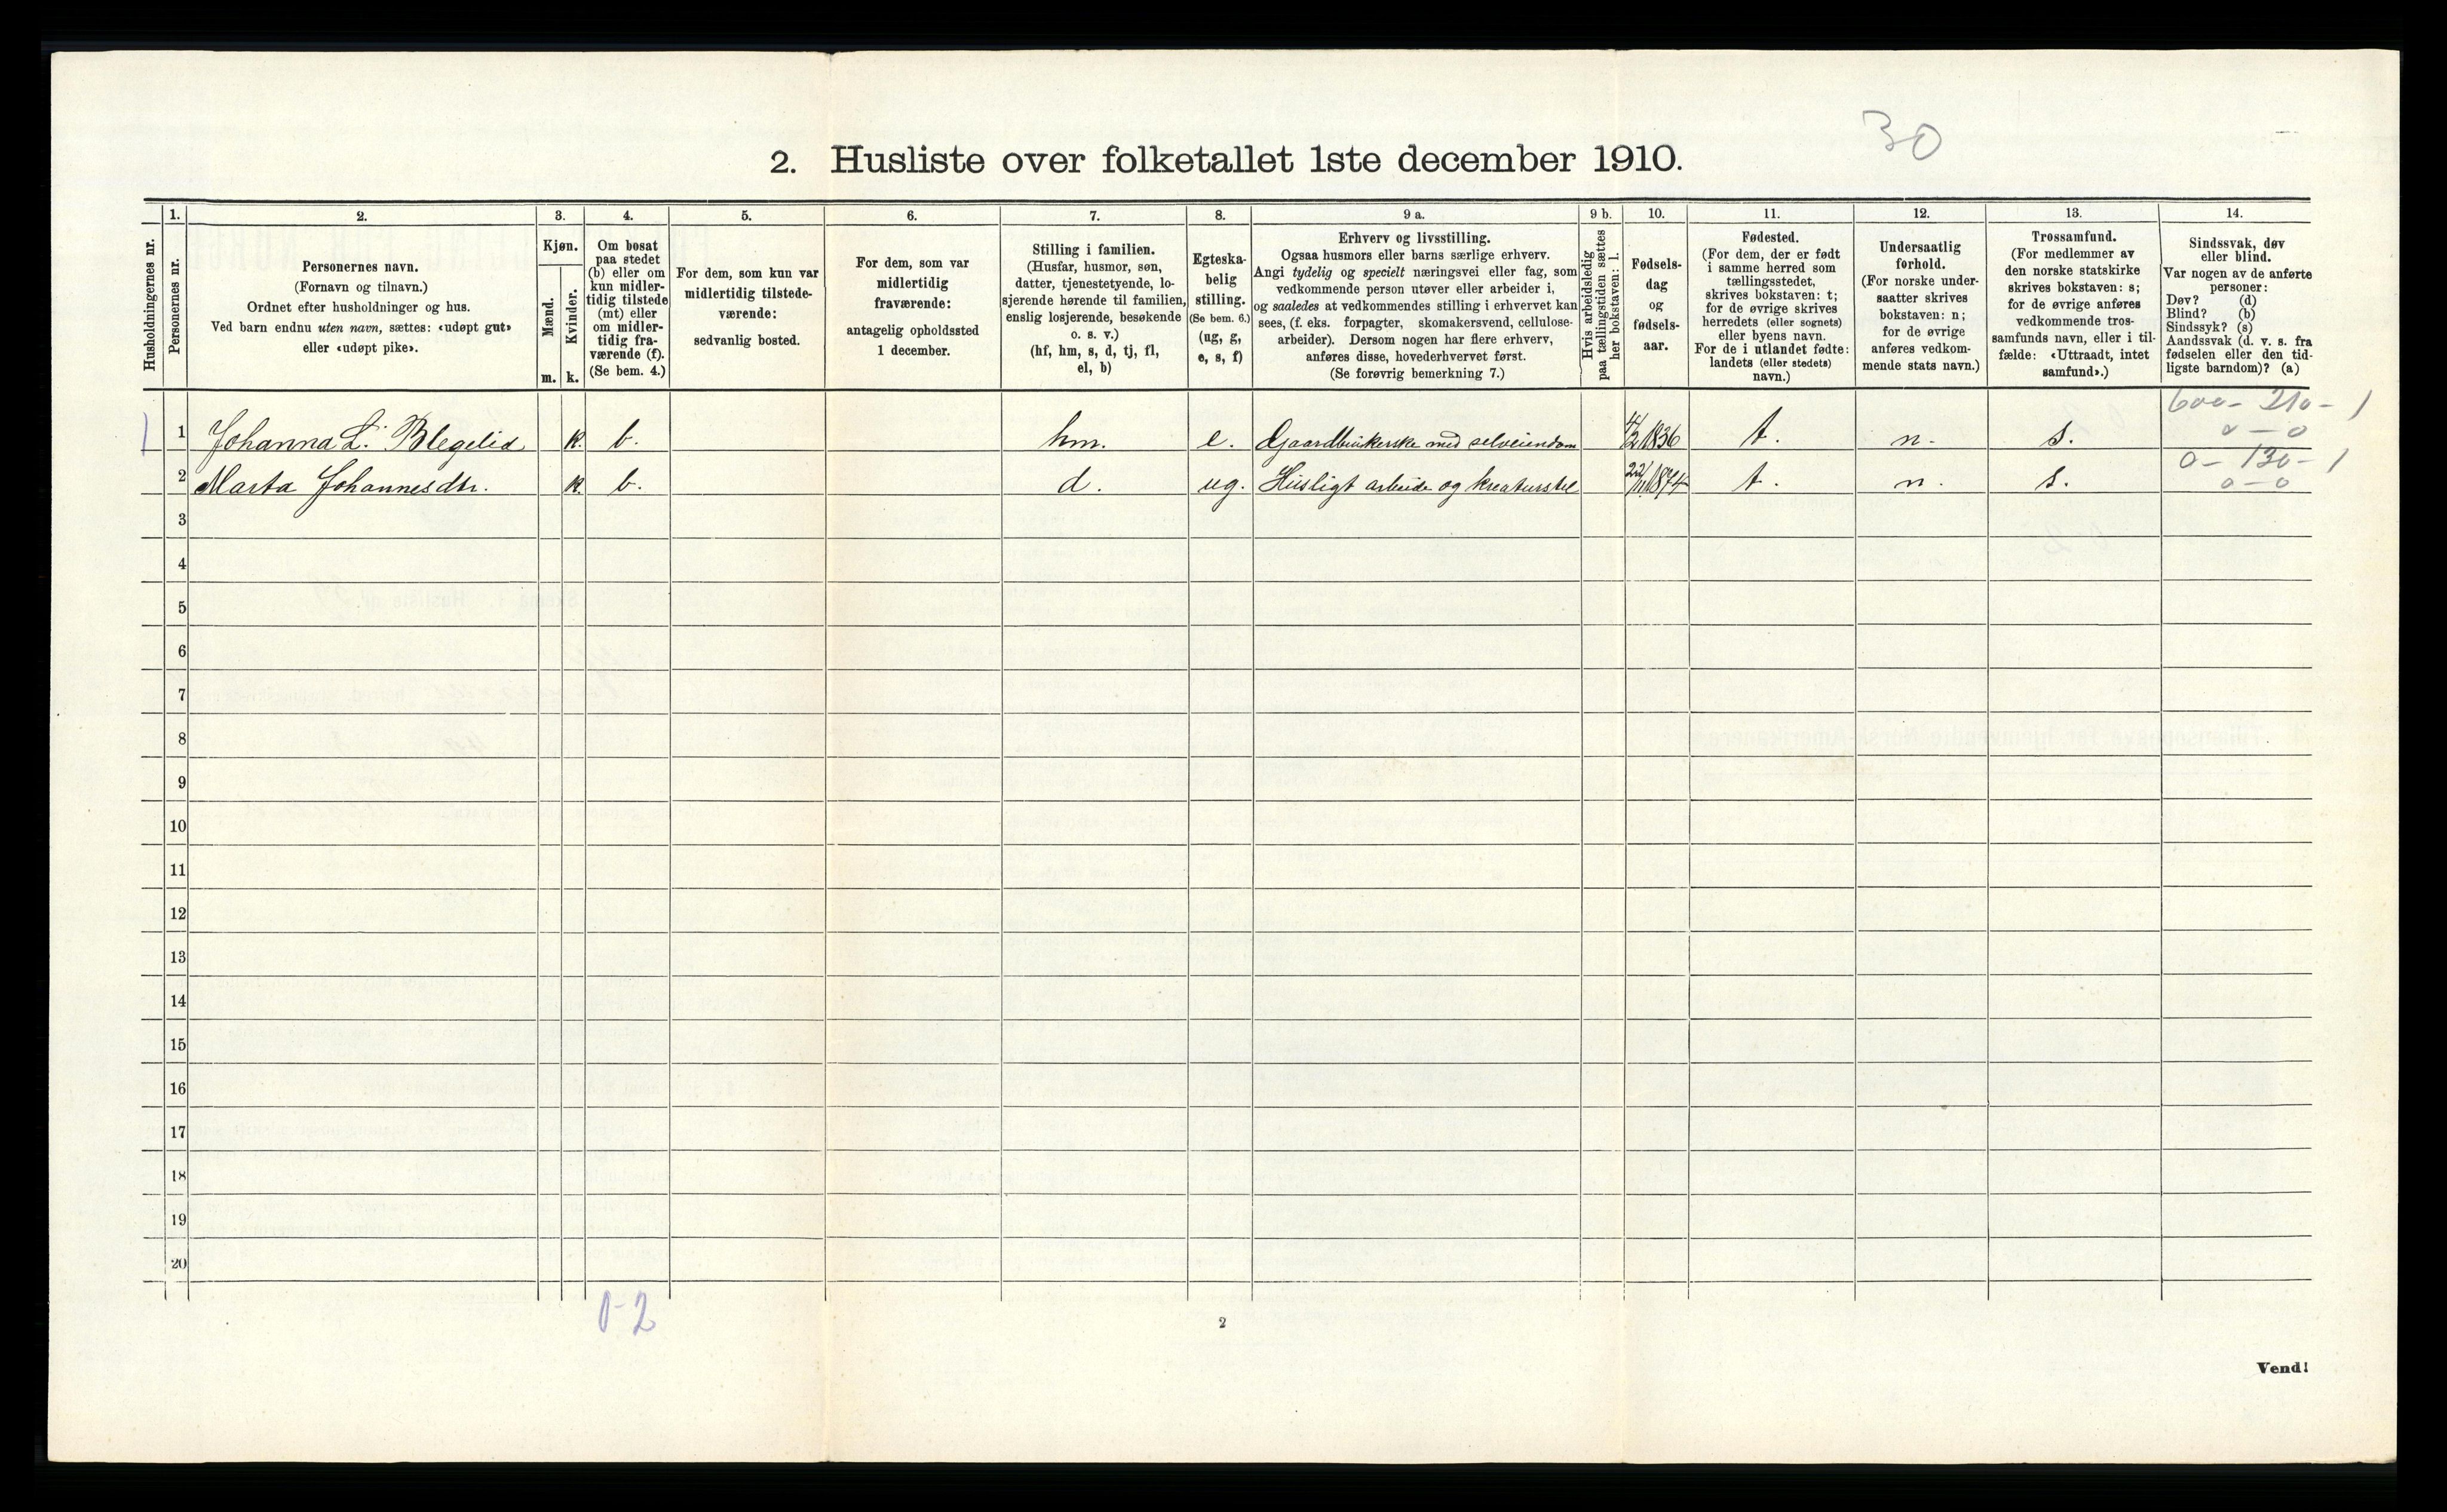 30
2. Husliste over folketallet 1ste december 1910.
Husholdningernes nr.
1.
Personernes nr.
2.
Personernes navn.
(Fornavn og tilnavn.)
Ordnet efter husholdninger og hus.
Ved barn endnu uten navn, sættes: «udøpt gut»
eller «udøpt pike».
3.
Kjøn.
Mænd.
m.
Kvinder.
k.
4.
Om bosat
paa stedet
(b) eller om
kun midler-
tidig tilstede
(mt) eller
om midler-
tidig fra-
værende (f).
(Se bem. 4.)
5.
For dem, som kun var
midlertidig tilstede-
værende:
sedvanlig bosted.
6.
For dem, som var
midlertidig
fraværende:
antagelig opholdssted
1 december.
7.
Stilling i familien.
(Husfar, husmor, søn,
datter, tjenestetyende, lo-
sjerende hørende til familien,
enslig losjerende, besøkende
o. s. v.)
(hf, hm, s, d, tj, fl,
el, b)
8.
Egteska-
belig
stilling.
(Se bem. 6.)
(ug, g,
e, s, f)
9 a.
Erhverv og livsstilling.
Ogsaa husmors eller barns særlige erhverv.
Angi tydelig og specielt næringsvei eller fag, som
vedkommende person utøver eller arbeider i,
og saaledes at vedkommendes stilling i erhvervet kan
sees, (f. eks. forpagter, skomakersvend, cellulose-
arbeider). Dersom nogen har flere erhverv,
anføres disse, hovederhvervet først.
(Se forøvrig bemerkning 7.)
9 b.
Hvis arbeidsledig
paa tællingstiden sættes
her bokstaven: l.
10.
Fødsels-
dag
og
fødsels-
aar.
11.
Fødested.
(For dem, der er født
i samme herred som
tællingsstedet,
skrives bokstaven: t;
for de øvrige skrives
herredets (eller sognets)
eller byens navn.
For de i utlandet fødte:
landets (eller stedets)
navn.)
12.
Undersaatlig
forhold.
(For norske under-
saatter skrives
bokstaven: n;
for de øvrige
anføres vedkom-
mende stats navn.)
13.
Trossamfund.
(For medlemmer av
den norske statskirke
skrives bokstaven: s;
for de øvrige anføres
vedkommende tros-
samfunds navn, eller i til-
fælde: «Uttraadt, intet
samfund».)
14.
Sindssvak, døv
eller blind.
Var nogen av de anførte
personer:
Døv? (d)
Blind? (b)
Sindssyk? (s)
Aandssvak (d. v. s. fra
fødselen eller den tid-
ligste barndom)? (a)
600 - 210 - 1
1 Johanna L. Blegelid k. b. hm. e. Gaardbrukerske med selveiendom 4/2 1836 t. n. s. 0 - 0
0 - 130 - 1
2 Marta Johannesdtr. k. b. d. ug. Husligt arbeide og kreaturstel 22/11 1874 t. n. s. 0 - 0
3
4
5
6
7
8
9
10
11
12
13
14
15
16
17
18
19
20
0-2
2
Vend!